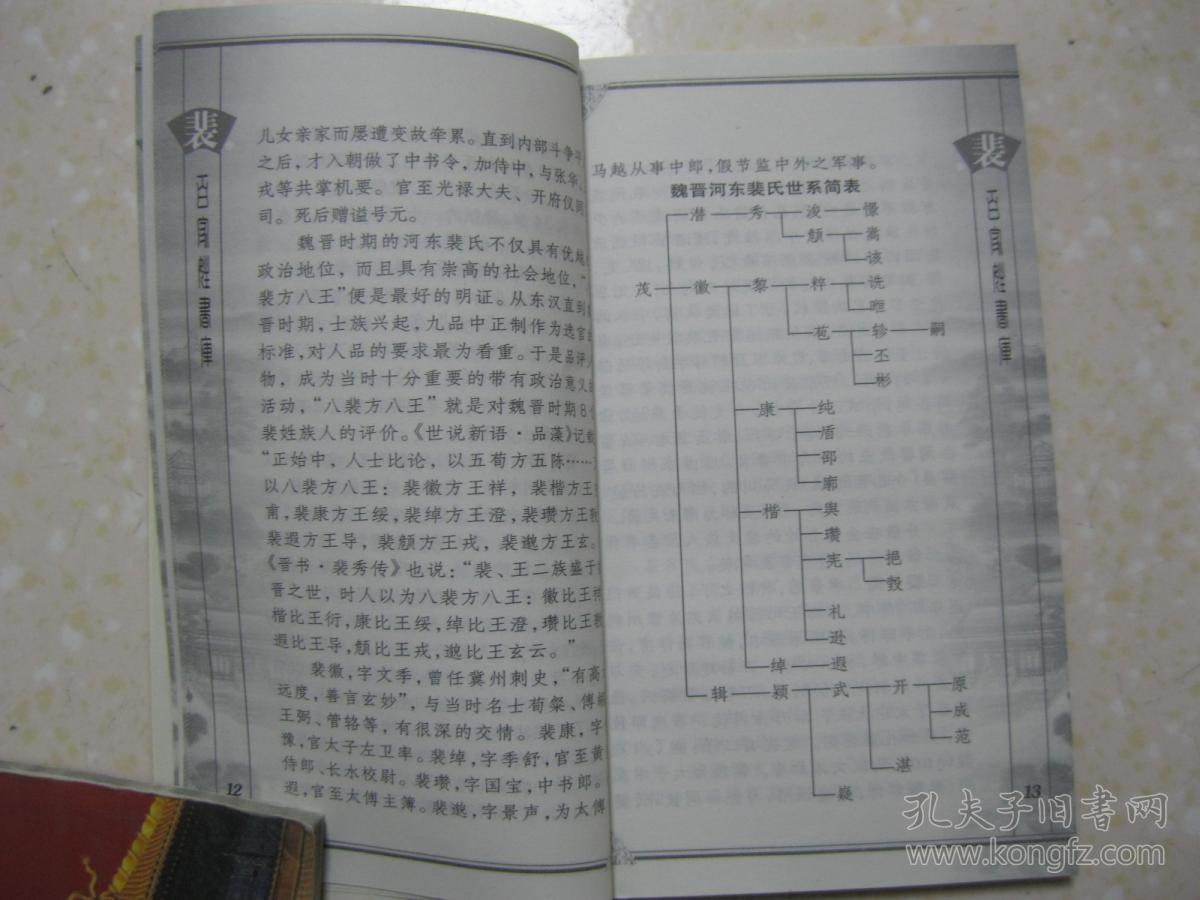 裴
百家姓書庫
儿女亲家而屡遭变故牵累。直到内部斗争平
之后，才入朝做了中书令，加侍中，与张华、
戎等共掌机要。官至光禄大夫、开府仪同
司。死后赠谥号元。
魏晋时期的河东裴氏不仅具有优越
政治地位，而且具有崇高的社会地位，“
裴方八王”便是最好的明证。从东汉直到
晋时期，士族兴起，九品中正制作为选官
标准，对人品的要求最为看重。于是品评人
物，成为当时十分重要的带有政治意义
活动，“八裴方八王”就是对魏晋时期8
裴姓族人的评价。《世说新语·品藻》记载
“正始中，人士比论，以五荀方五陈……
以八裴方八王：裴徽方王祥，裴楷方王
南，裴康方王绥，裴绰方王澄，裴瓒方王
裴遐方王导，裴頠方王戎，裴邈方王玄。
《晋书·裴秀传》也说：“裴、王二族盛于
晋之世，时人以为八裴方八王：徽比王祥
楷比王衍，康比王绥，绰比王澄，瓒比王
遐比王导，頠比王戎，邈比王玄云。”
裴徽，字文季，曾任冀州刺史，“有高
远度，善言玄妙”，与当时名士荀粲、傅
王弼、管辂等，有很深的交情。裴康，字
豫，官太子左卫率。裴绰，字季舒，官至黄
侍郎、长水校尉。裴瓒，字国宝，中书郎。
遐，官至太傅主簿。裴邈，字景声，为太傅
12
裴
百家姓書庫
马越从事中郎，假节监中外之军事。
魏晋河东裴氏世系简表
潜 秀 浚 憬
頠 嵩
该
茂 徽 黎 粹 诜
暅
苞 轸 嗣
丕
彬
康 纯
盾
邵
廓
楷 舆
瓒
宪 挹
毂
礼
逊
绰 遐
辑 颖 武 开 原
成
范
湛
嶷
13
孔夫子旧书网
www.kongfz.com